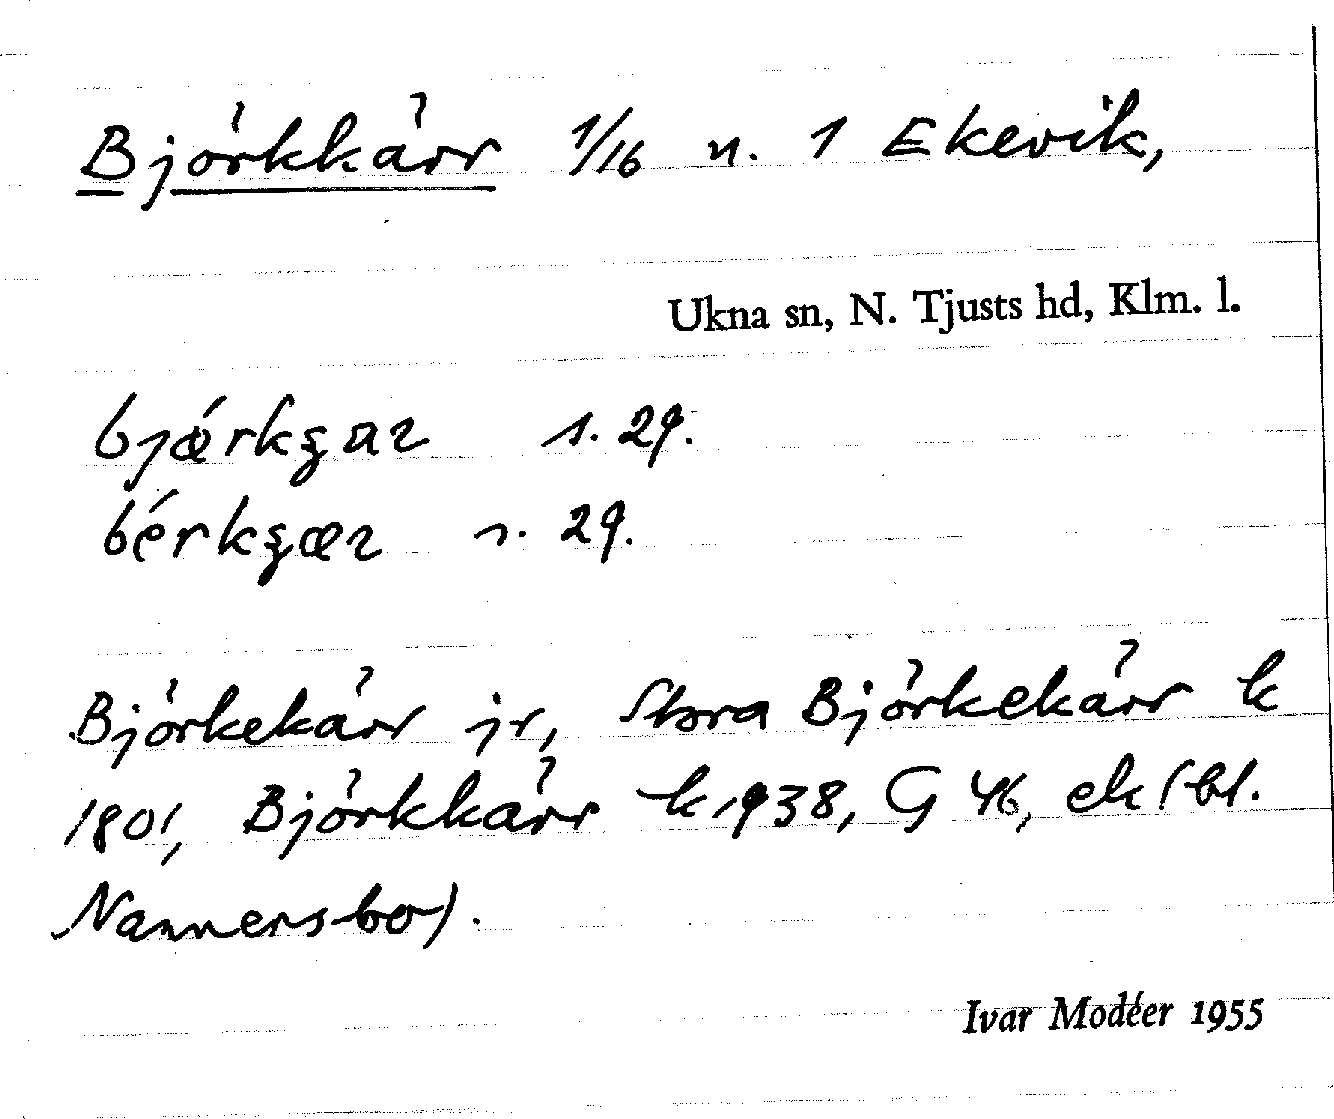 Björkkärr 1/16 n. 1 Ekevik,
Ukna sn, N. Tjusts hd, Klm. l.
s. 29.
s. 29.
Björkekärr jr, Stora Björkekärr k
1801, Björkkärr k 1938, G 46, ek (bl.
Nannersbo).
Ivar Modéer 1955